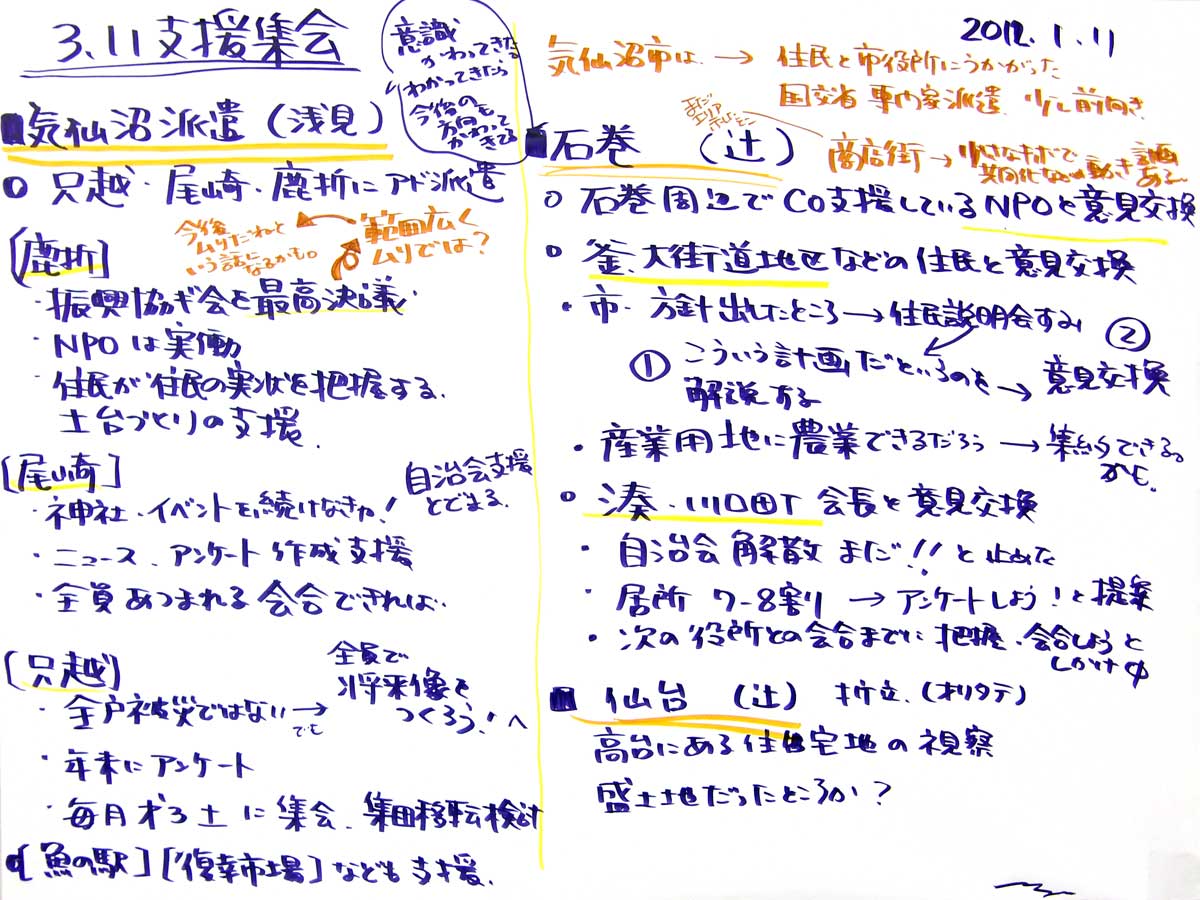 3.11支援集会
2012.1.11
意識
かわってきた
わかってきたら
今後の
方向も
かわって
きてる
■気仙沼派遣(浅見)
○只越・尾崎・鹿折にアド派遣
範囲広く
ムリでは?
今後
ムリだねと
いう話になるかも。
[鹿折]
・振興協ギ会を最高決議
・NPOは実働
・住民が住民の実状を把握する.
土台づくりの支援.
[尾崎]
・神社.イベントを続けなきゃ!
自治会支援
とどまる.
・ニュース、アンケート作成支援
・全員あつまれる会合できれば.
[只越]
・全戸被災ではない→
でも
全員で
将来像を
つくろう!へ
・年末にアンケート
・毎月オ3土に集会、集団移転検討
○[魚の駅]["復幸市場]なども支援.
気仙沼市は→住民と市役所にうかがった
国交省専門家派遣 少し前向き
■石巻 (辻)
まだ
エリア
商店街→小さなキボで
共同化などの動き
計画
ある
○石巻周辺でCO支援しているNPOと意見交換
○釜、大街道地区などの住民と意見交換
・市.方針出したところ→住民説明会すみ
①こういう計画だといるのを→
解説する
②
意見交換
・産業用地に農業できるだろう→集約できる。
かも.
○湊.川口町会長と意見交換
・自治会解散まだ!!と止めた
・居所7-8割→アンケートしよう!と提案
・次の役所との会合までに把握.会合しようと
しかけ中
■仙台(辻) 折立.(オリタテ)
高台にある住宅地の視察
盛土地だったところか?